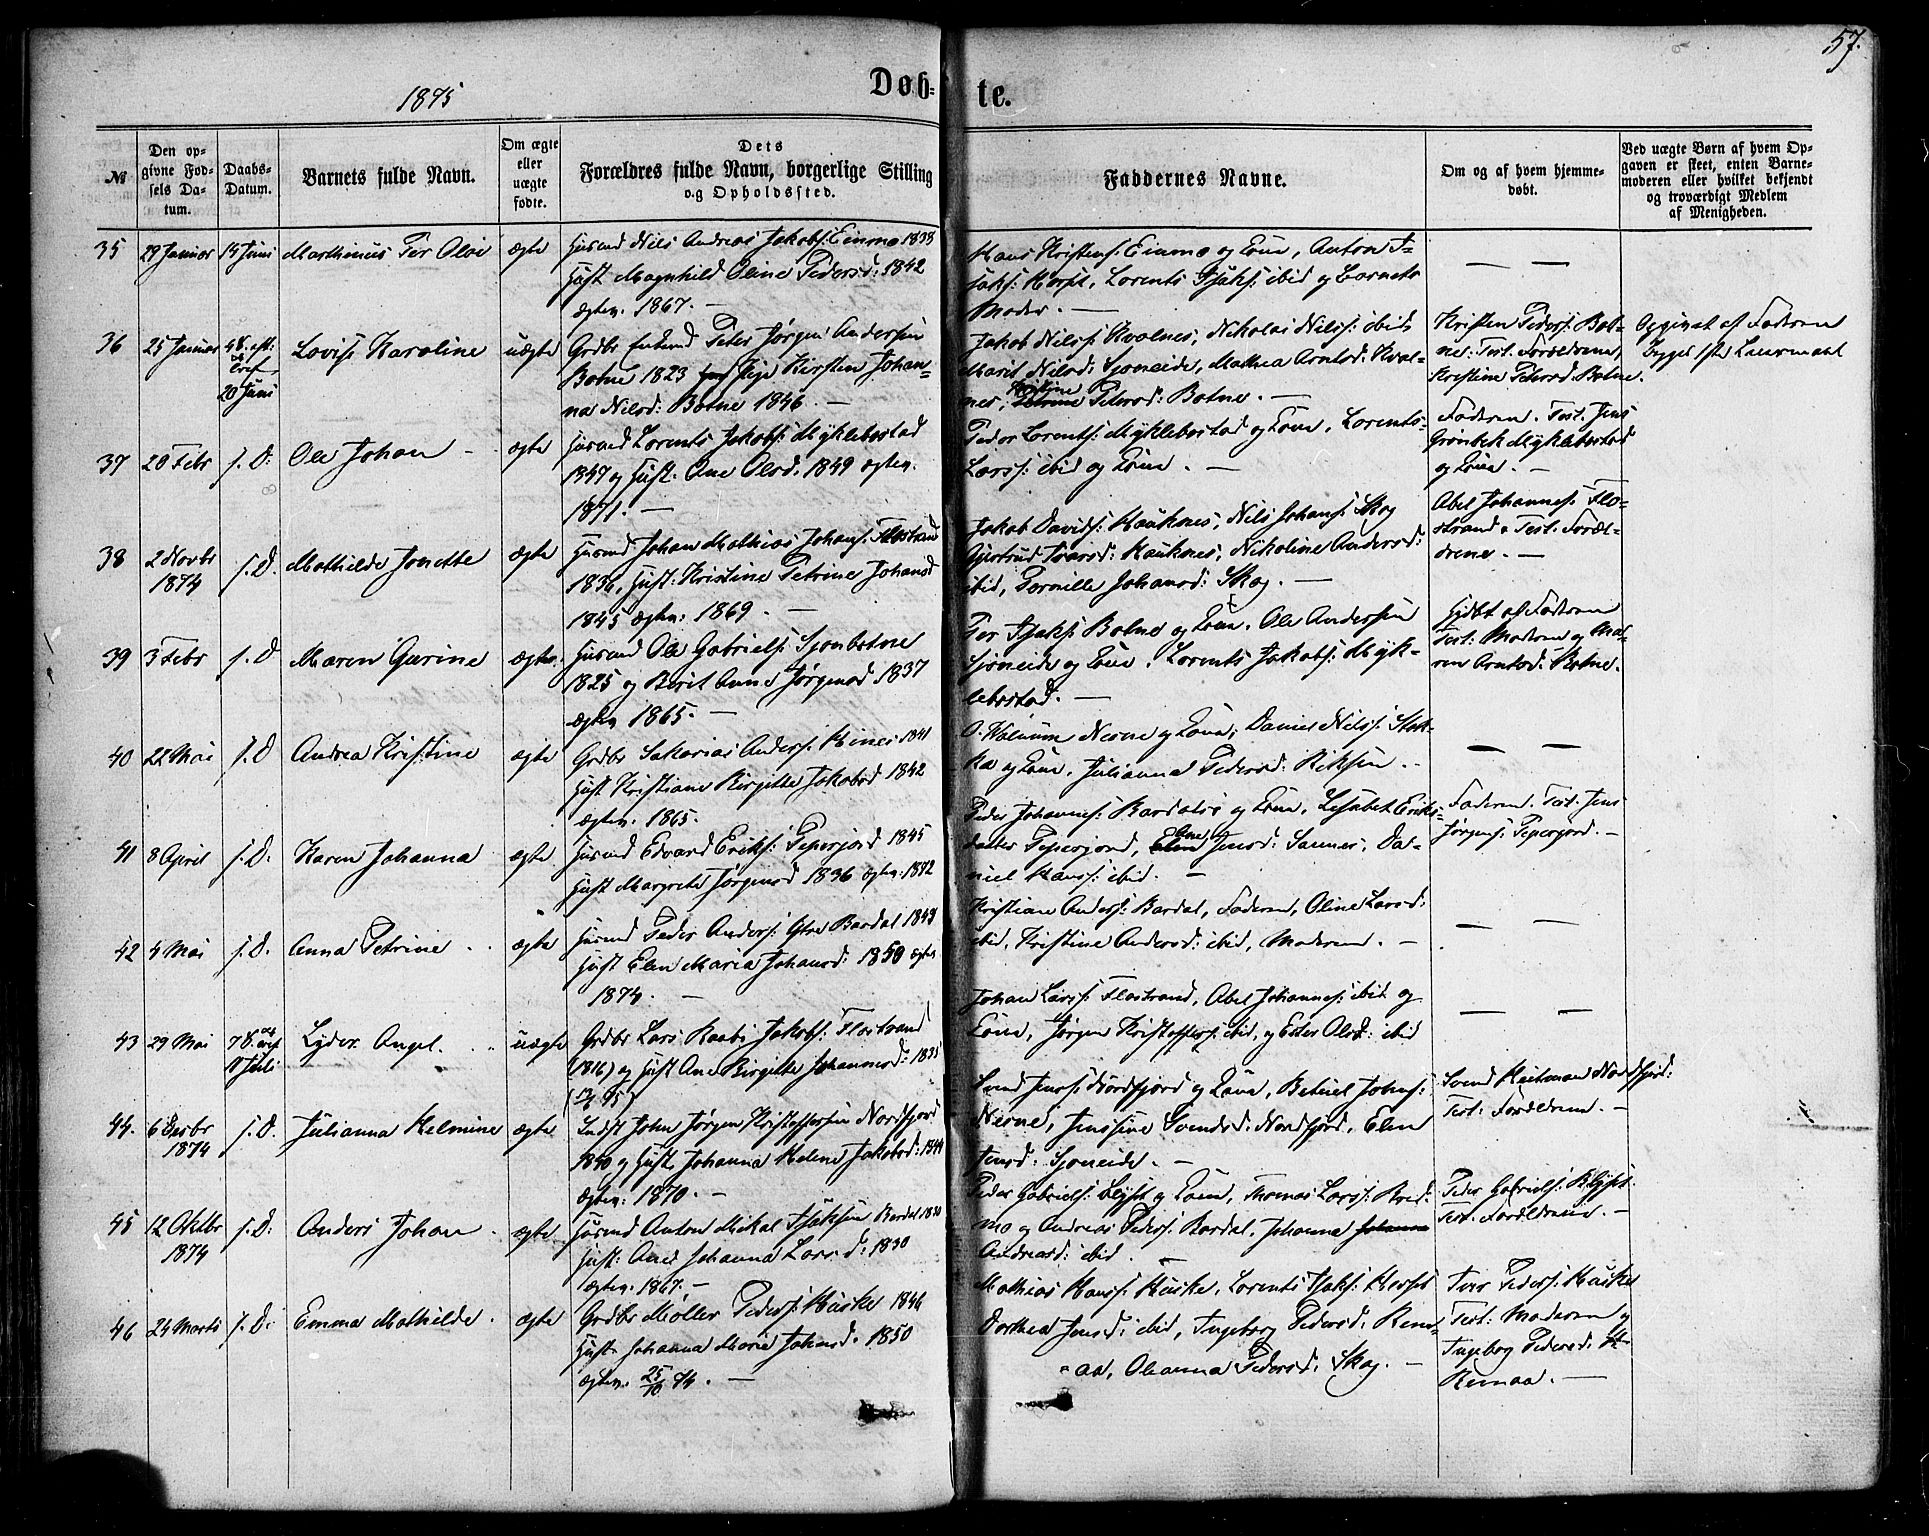 57.
1875
Døb-
te.
№
Den op-
givne Fød-
sels Da-
tum.
Daabs-
Datum.
Barnets fulde Navn.
Om ægte
eller
uægte
fødte.
Dets
Forældres fulde Navn, borgerlige Stilling
og Opholdssted.
Faddernes Navne.
Om og af hvem hjemme-
døbt.
Ved uægte Børn af hvem Op-
gaven er skeet, enten Barne-
moderen eller hvilket bekjendt
og troværdigt Medlem
af Menigheden.
35 29 Januar 14 Juni Marthinus Per Olai ægte
Husmd Nils Andreas Jakobs: Einmo 1838
Hust Magnhild Oline Pedersd: 1842
ægtev. 1867. —
Hans Kristens: Einmo og Kone, Anton I-
saks: Horset, Lorents Isaks: ibid og Barnets
Moder. —
— —
36 25 Januar
20 Juni
Lovise Karoline uægte
Grdbr Enkemd Peter Jørgen Andersen
Botne 1823 Pige Kirsten Johan-
na Nilsd: Botne 1846. —
Jakob Nilss: Kvalnes, Nikolai Nilss: ibid
Marit Nilsd: Sjoneide, Mathea Arntsd: Kval-
nes, Kristine Pedersd: Botne. —
Kristen Peders: Bot-
ne. Test. Forældrene,
Kristine Pedersd Botne.
Opgivet af Faderen
Begges 1ste Leiermaal
37 20 Febr s. D: Ole Johan ægte
Husmd Lorents Jakobs: Myklebostad
1847 og Hust: Ane Olsd. 1849 ægtev.
1871. —
Peder Lorents: Myklebostad og Kone, Lorents
Larss: ibid og Kone. —
Faderen. Test. Jens
Grønbek Myklebostad
og Kone. —
38 2 Novbr
1874
s. D. Mathilde Jonette ægte
Husmd Johan Mathias Johans: Flostrand
1836, Hust: Kristine Petrine Johansd
1845 ægtev: 1869. —
Jakob Davids: Hauknes, Nils Johans: Skog
Gjertrud Ivarsd: Hauknes, Nikoline Andersd:
ibid, Pernille Johansd: Skog. —
Abel Johannes: Flo-
strand. Test. Foræl-
drene. —
39 3 Febr s. D Maren Gurine ægte.
Husmd Ole Gabriels: Sjonbotne
1825 og Berit Anne Jørgensd 1837
ægtev. 1865. —
Per Isaks: Botne og Kone, Ole Andersen
Sjoneide og Kone, Lorents Jakobs: Myk-
lebostad. —
Hjdbt af Faderen
Test: Moderen og Ma-
ren Arntsd: Botne.
40 22 Mai s. D Andrea Kristine ægte
Grdbr Sakarias Anders: Hines 1841
Hust Kristiane Birgitte Jakobsd 1842
ægtev. 1865.
Nerne og Kone, Daniel Nilss: Stok-
ka og Kone, Julianna Pedersd:
— —
41 8 April s. D. Karen Johanna ægte
Husmd Edvard Eriks: Pepersjord 1845
Hust Margrete Jørgensd 1836 ægtev: 1872
Peder Johannes: Bardalsø og Kone, Lisabet Eriks-
datter Pepersjord, Ane Jensd: Sannes, Da-
niel Hans: ibid. —
Faderen. Test. Jens
Jørgens: Pepersjord. —
42 4 Mai s. D. Anna Petrine ægte
Husmd Peder Anders: Ytre Bardal 1848
Hust Elen Maria Johansd: 1850 ægtev
1874. —
Kristian Anders: Bardal, Faderen, Oline Larsd:
ibid, Kristine Andersd: ibid, Moderen. —
— —
43 29 Mai
11 Juli
Lyder Angel. uægte
Grdbr Lars Raabi Jakobs: Flostrand
(1816) og Hust Ane Birgitte Johannesd: 1835
Johan Larss: Flostrand, Abel Johannes: ibid og
Kone, Jørgen Kristoffers: ibid, og Ester Olsd: ibid
— —
44. 6 Decbr
1874
s. D. Julianna Helmine ægte
Indst John Jørgen Kristoffersen Nordfjord
1840 og Hust. Johanna Helene Jakobsd: 1844
ægtev: 1870. —
Svend Jens: Nordfjord og Kone, Betuel Johns:
Nerne, Jensine Svendsd: Nordfjord, Elen
Jensd: Sjoneide. —
Svend Heitman Nordfjord:
Test: Forældrene. —
45 12 Oktbr
1874
s. D: Anders Johan ægte
Husmd Anton Mikal Isaksen Bardal 1830
Hust: Ane Johanna Larsd: 1830
ægtev. 1867. —
Peder Gabriels: og Kone, Thomas Larss: Bred-
mo og Andreas Peders: Bardal, Johanna Johanna
Andreasd: ibid. —
Peder Gabriels:
Test: Forældrene. —
46 24 Marts s. D: Emma Mathilde. ægte
Grdbr Møller Peders: Huske 1846
Hust Johanna Marie Johnsd. 1850
ægtev. 25/10 74. —
Mathias Hans: Huske, Lorents Isaks: Horset
Dorthea Jensd: ibid, Ingeborg Pedersd: Rem-
aa, Oleanna Pedersd: Skog. —
Iver Peders: Huske
Test: Moderen og
Ingebog Pedersd:
Remaa. —